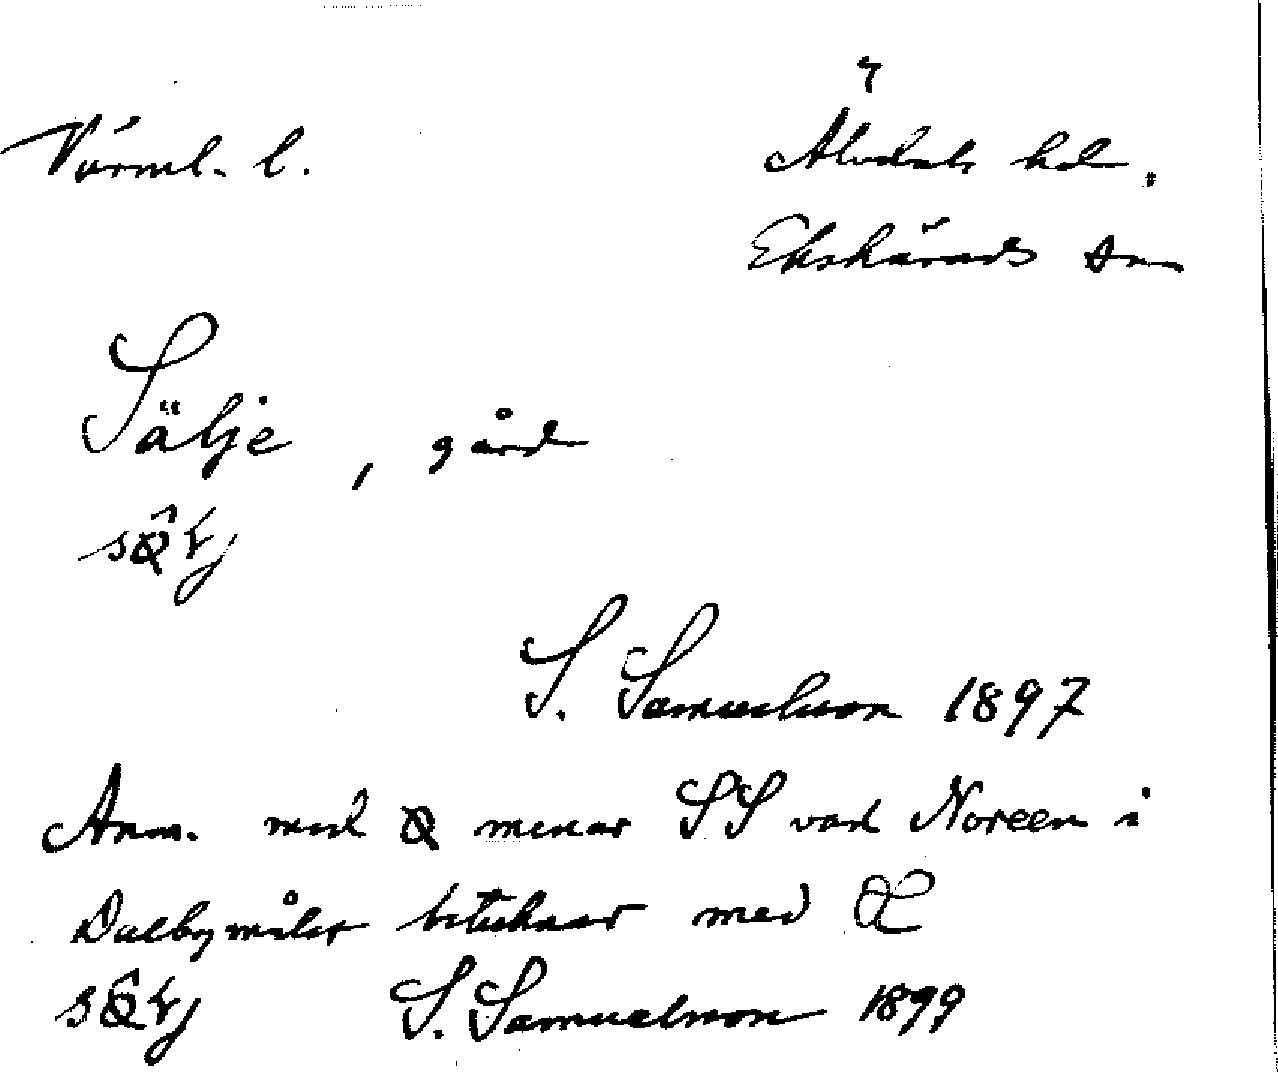 Värml. l.
Älvdals hd.
Ekshärads sn
Sälje, gård
S. Samuelsson 1897
Anm. med menar SS vad Noreen i
Dalbymålet betecknar med Œ
S. Samuelsson 1899